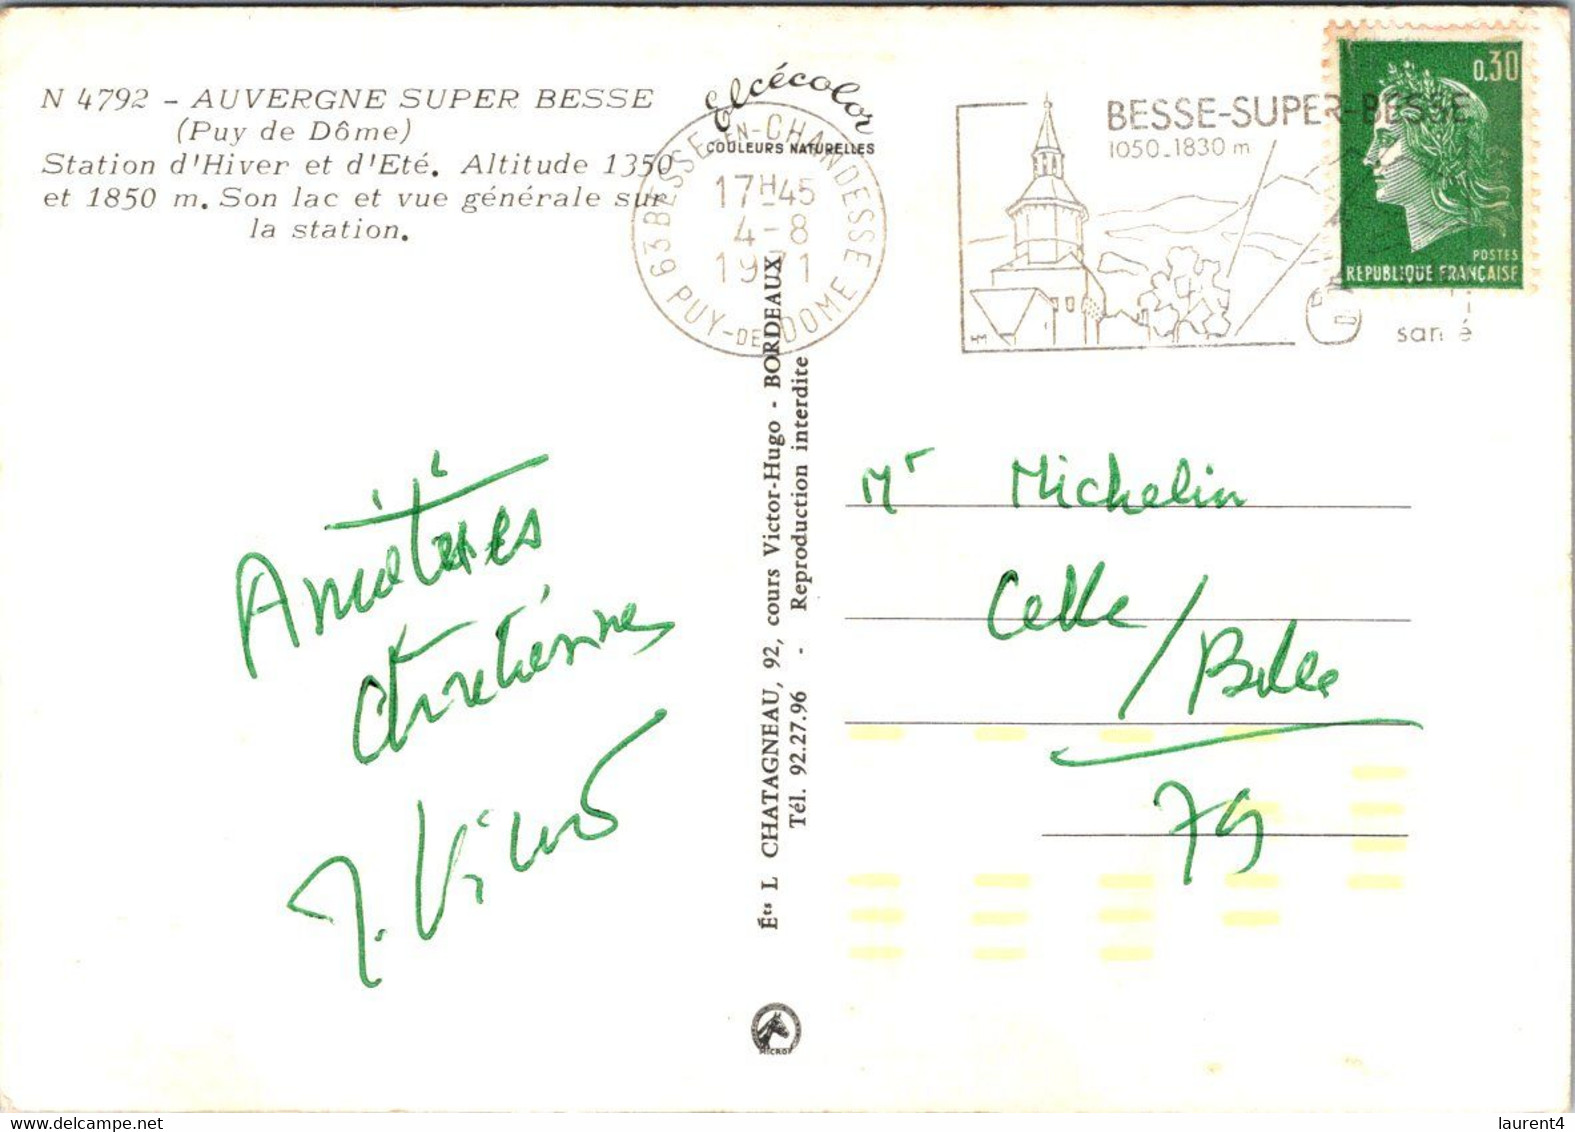 N 4792 - AUVERGNE SUPER BESSE
(Puy de Dôme)
Station d'Hiver et d'Eté. Altitude 1350
et 1850 m. Son lac et vue générale sur
la station.
Elcécolor
COULEURS NATURELLES
63 BESSE-EN-CHANDESSE
17H45
4-8
1971
PUY-DE-DOME
BESSE-SUPER-BESSE
1050-1830 m
santé
0,30
POSTES
REPUBLIQUE FRANÇAISE
Amitiés
Chrétiennes
Mr Michelin
Celle
/Belle
79
Éts L CHATAGNEAU, 92, cours Victor-Hugo - BORDEAUX
Tél. 92.27.96 - Reproduction interdite
MICRO
laurent4